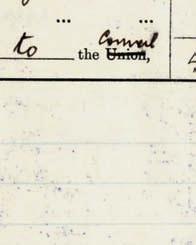 ... ...
Council
to the Union,